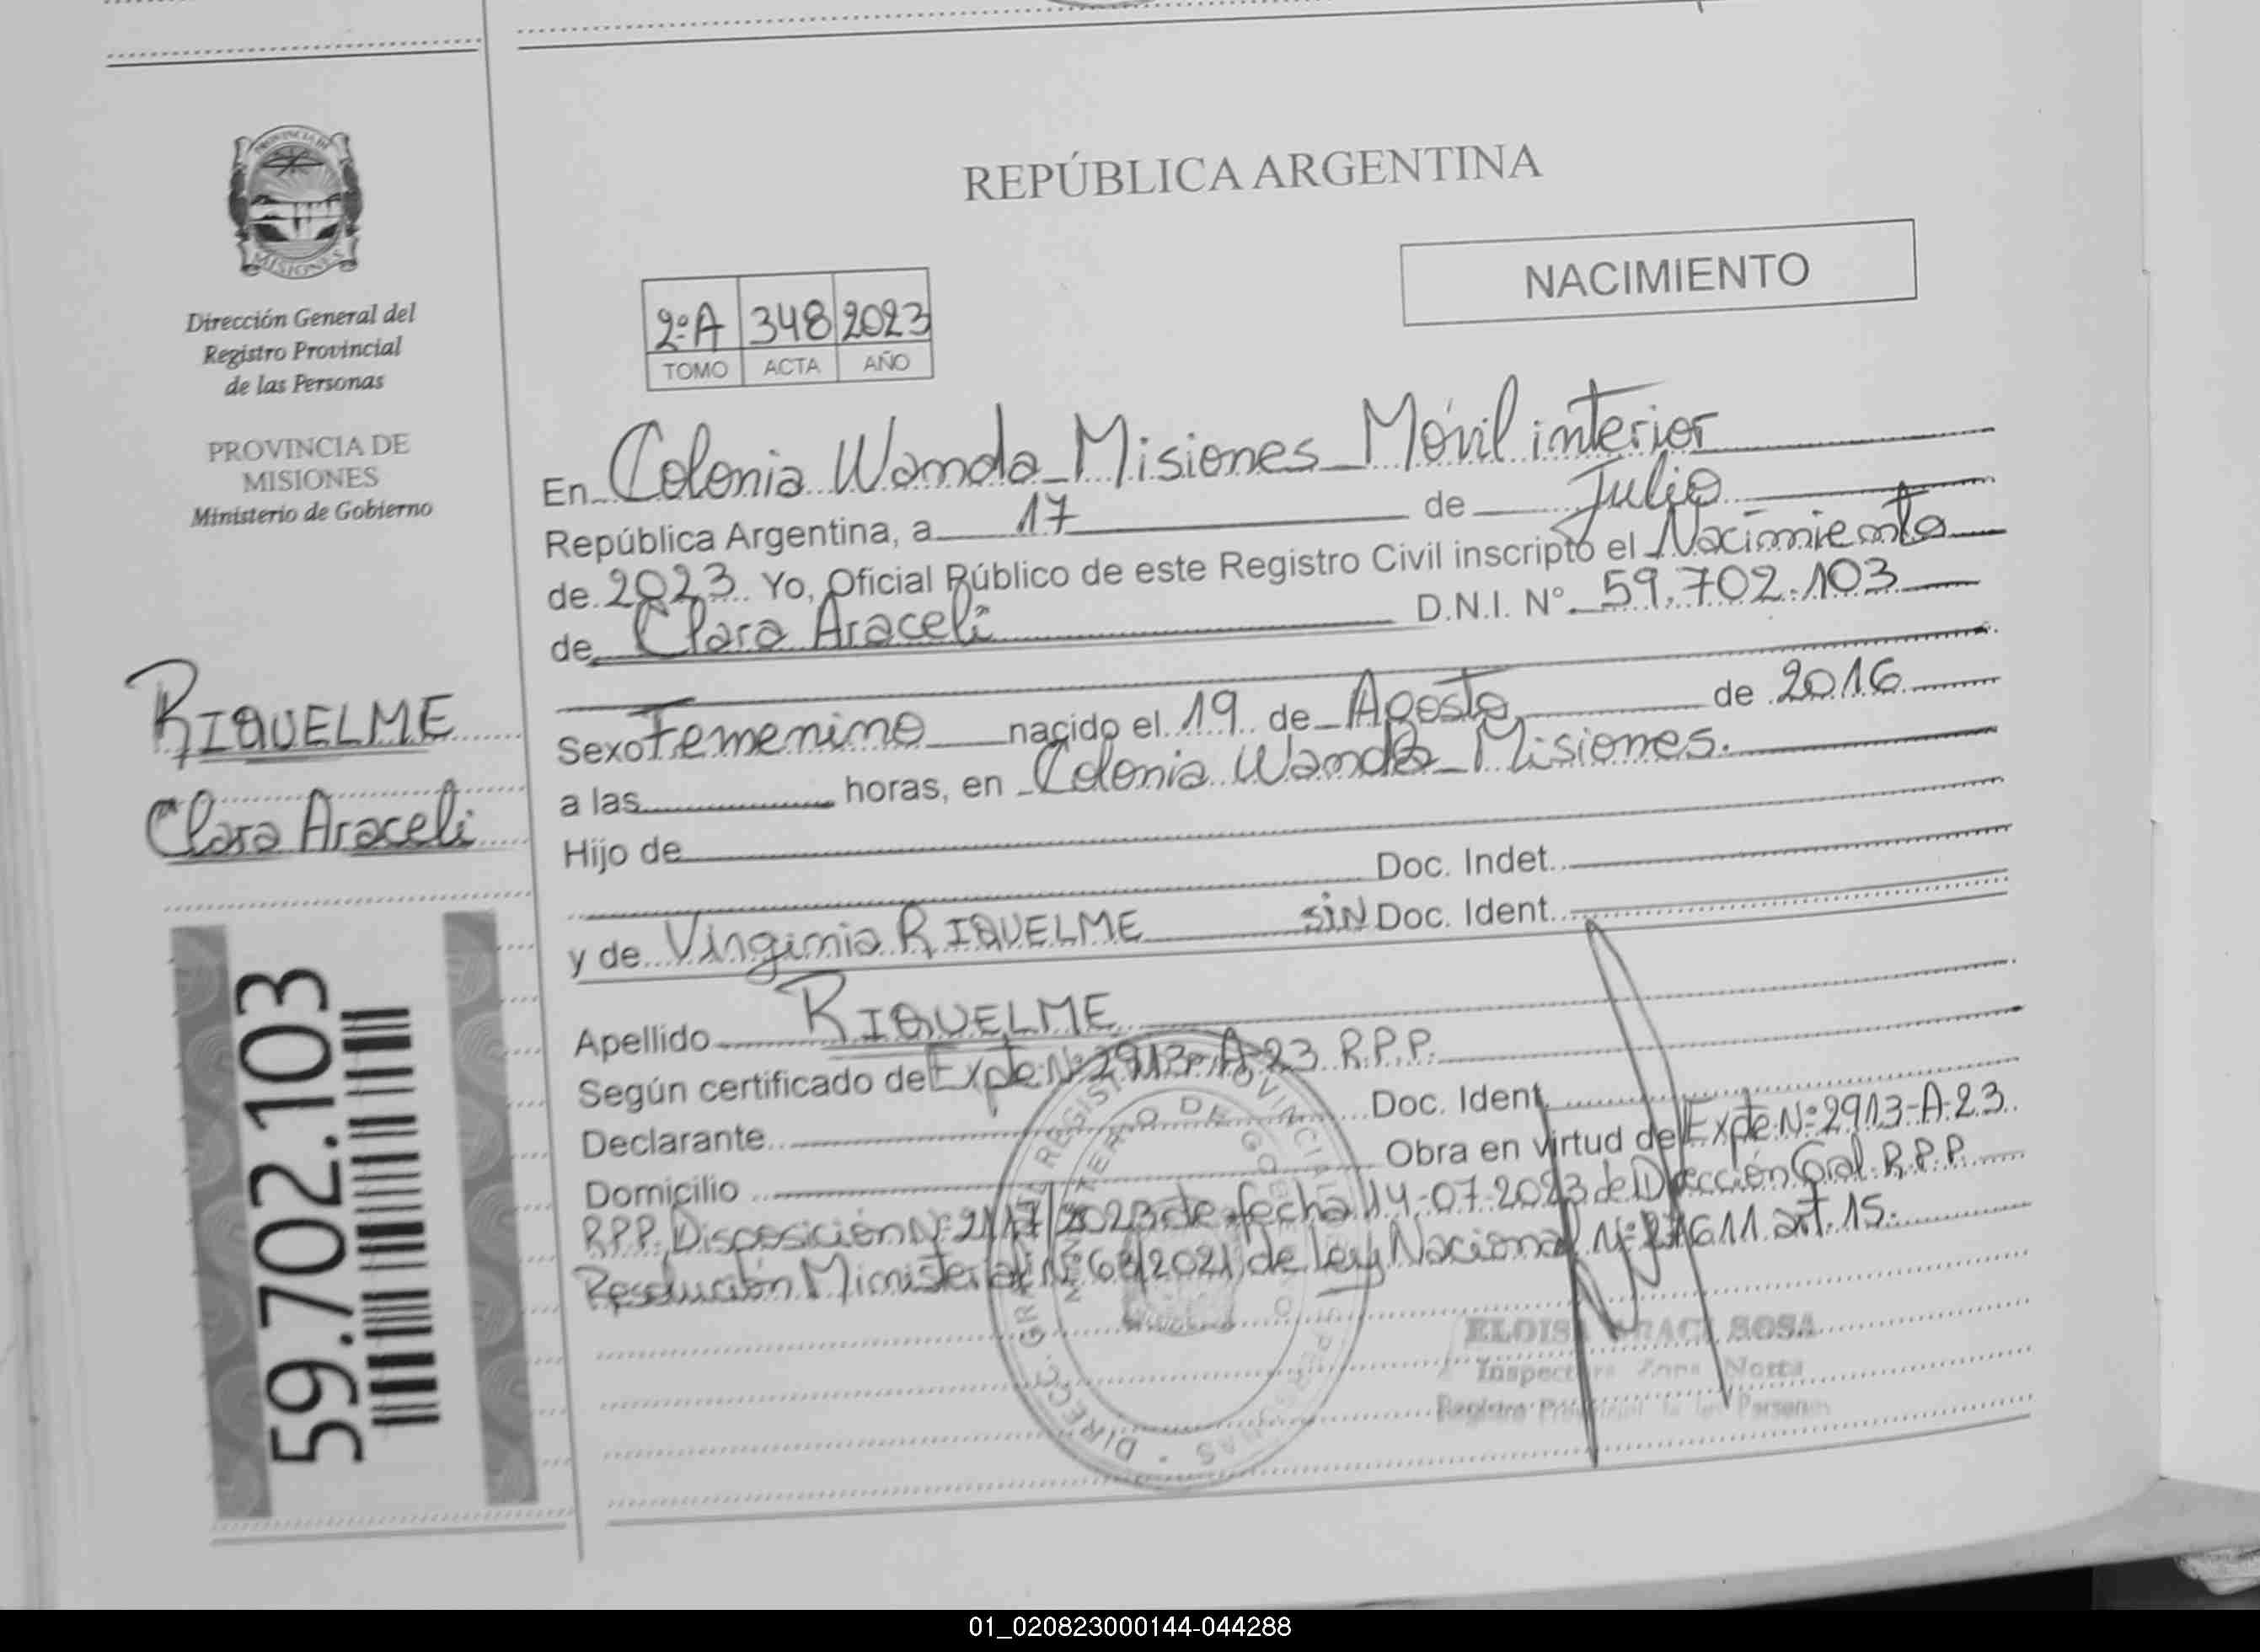 PROVINCIA DE
MISIONES
Dirección General del
Registro Provincial
de las Personas
PROVINCIA DE
MISIONES
Ministerio de Gobierno
RIQUELME
Clara Araceli
59.702.103
REPÚBLICA ARGENTINA
NACIMIENTO
2ºA 348 2023
TOMO ACTA AÑO
En Colonia Wanda_Misiones_Móvil interior
República Argentina, a 17 de Julio
de 2023 Yo, Oficial Público de este Registro Civil inscripto el Nacimiento
de Clara Araceli D.N.I. N° 59.702.103
Sexo Femenino nacido el 19 de Agosto de 2016
a las horas, en Colonia Wanda_Misiones.
Hijo de
Doc. Indet.
y de Virginia RIQUELME SIN Doc. Ident.
Apellido RIQUELME
Según certificado de Expte Nº 2913-A-23 R.P.P.
Declarante Doc. Ident.
Domicilio Obra en virtud del Expte Nº 2913-A-23
R.P.P. Disposición Nº 2117/2023 de fecha 14-07-2023 de Dirección Gral. R.P.P.
Resolución Ministerial Nº 63/2021 de Ley Nacional Nº 27611 art. 15.
ELOISA ARACI SOSA
Inspectora Zona Norte
Registro Provincial de las Personas
01_020823000144-044288